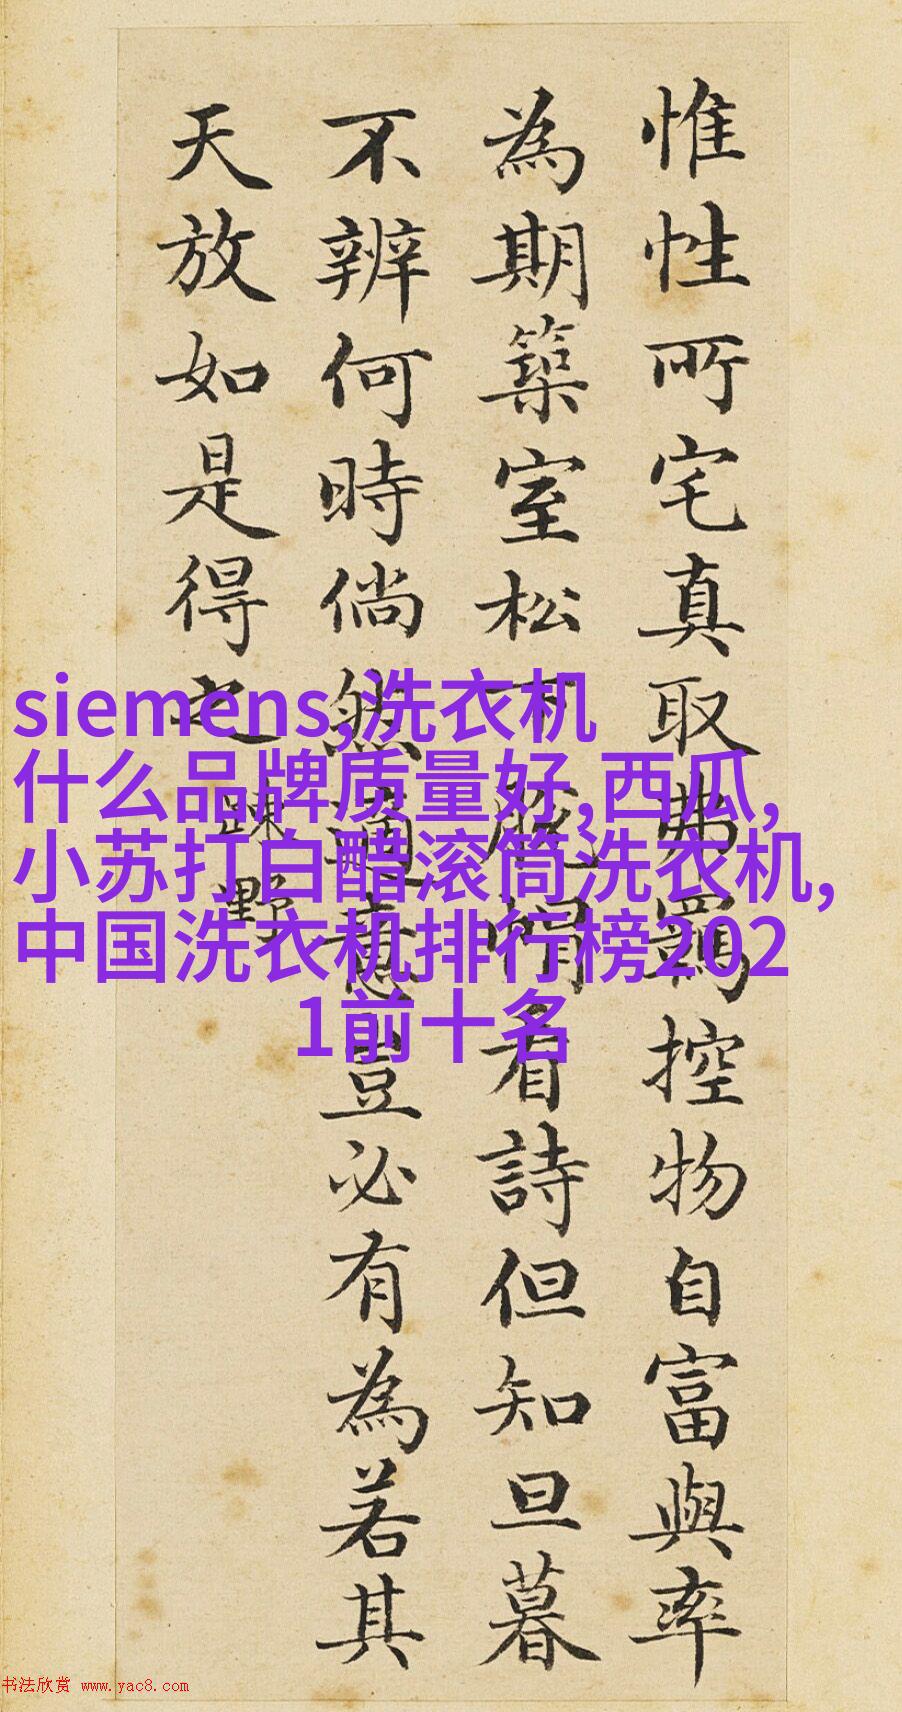 惟性所宅真取弗羈控物自富與率
為期築室松下脫帽看詩但知旦暮
不辨何時倘然適意豈必有為若其
天放如是得之
疎野
siemens,洗衣机
什么品牌质量好,西瓜,
小苏打白醋滚筒洗衣机,
中国洗衣机排行榜202
1前十名
书法欣赏 www.yac8.com